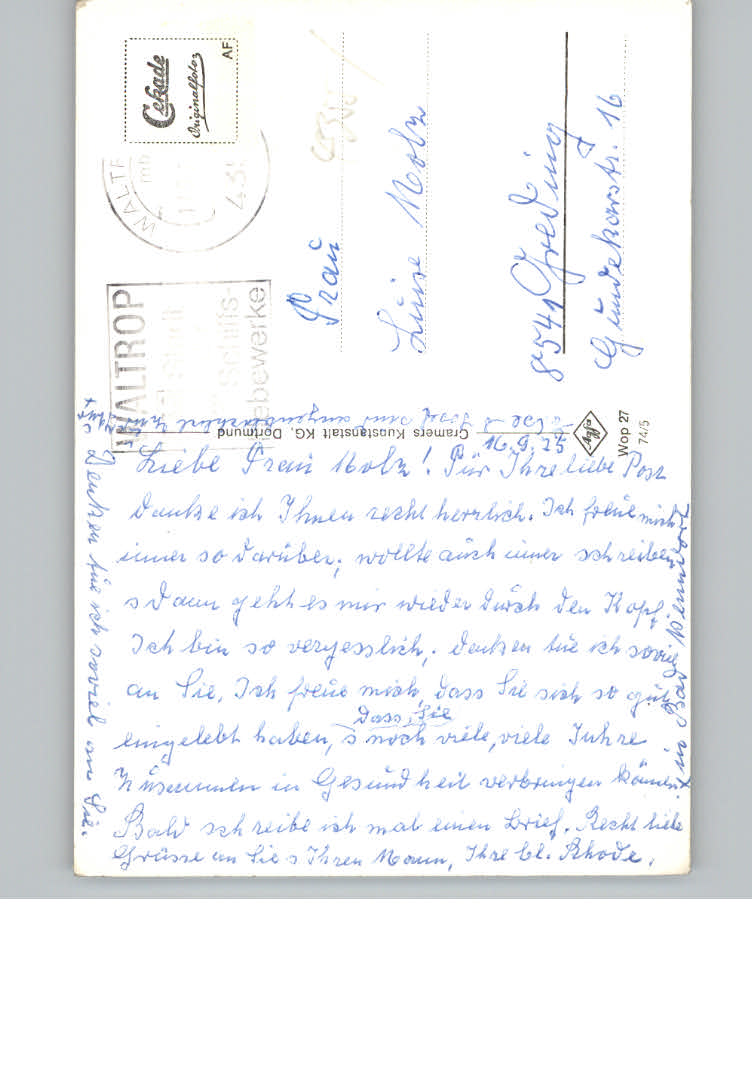 Cekade
Originalfotos
AF
WALTROP
Schiffs-
hebewerke
Frau
Luise Molz
8541 Greding
Gundekarstr. 16
Cramers Kunstanstalt KG, Dortmund
Agfa
Wop 27
74/5
16.9.75
Liebe Frau Molz! Für Ihre liebe Post
danke ich Ihnen recht herzlich. Ich freue mich
immer so darüber, wollte auch immer schreiben
s dann geht es mir wieder durch den Kopf.
Ich bin so vergesslich, denken tue ich soviel
an Sie. Ich freue mich, dass Sie sich so gut
eingelebt haben, s noch viele, viele Jahre
dass Sie
zusammen in Gesundheit verbringen können.
Bald schreibe ich mal einen Brief. Recht liebe
Grüsse an Sie s Ihren Mann, Ihre El. Rhode.
in Bad Nenndorf
Denken tue ich soviel an Sie.
Josef sind